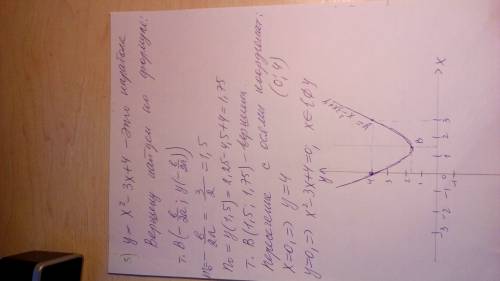 3) y = x² - 3x + 4 - это парабола
Вершину найдем по формуле:
т. B(-b/2a; y(-b/2a))
-b/2a = 3/2 = 1,5
n₀ = y(1,5) = 2,25 - 4,5 + 4 = 1,75
т. B(1,5; 1,75) - вершина
Пересечение с осями координат:
x=0, => y = 4 (0; 4)
y=0, => x² - 3x + 4 = 0; x∈{∅}
y
y = x² - 3x + 4
4
2
B
-3 -2 -1 0 1 2 3 x
-1